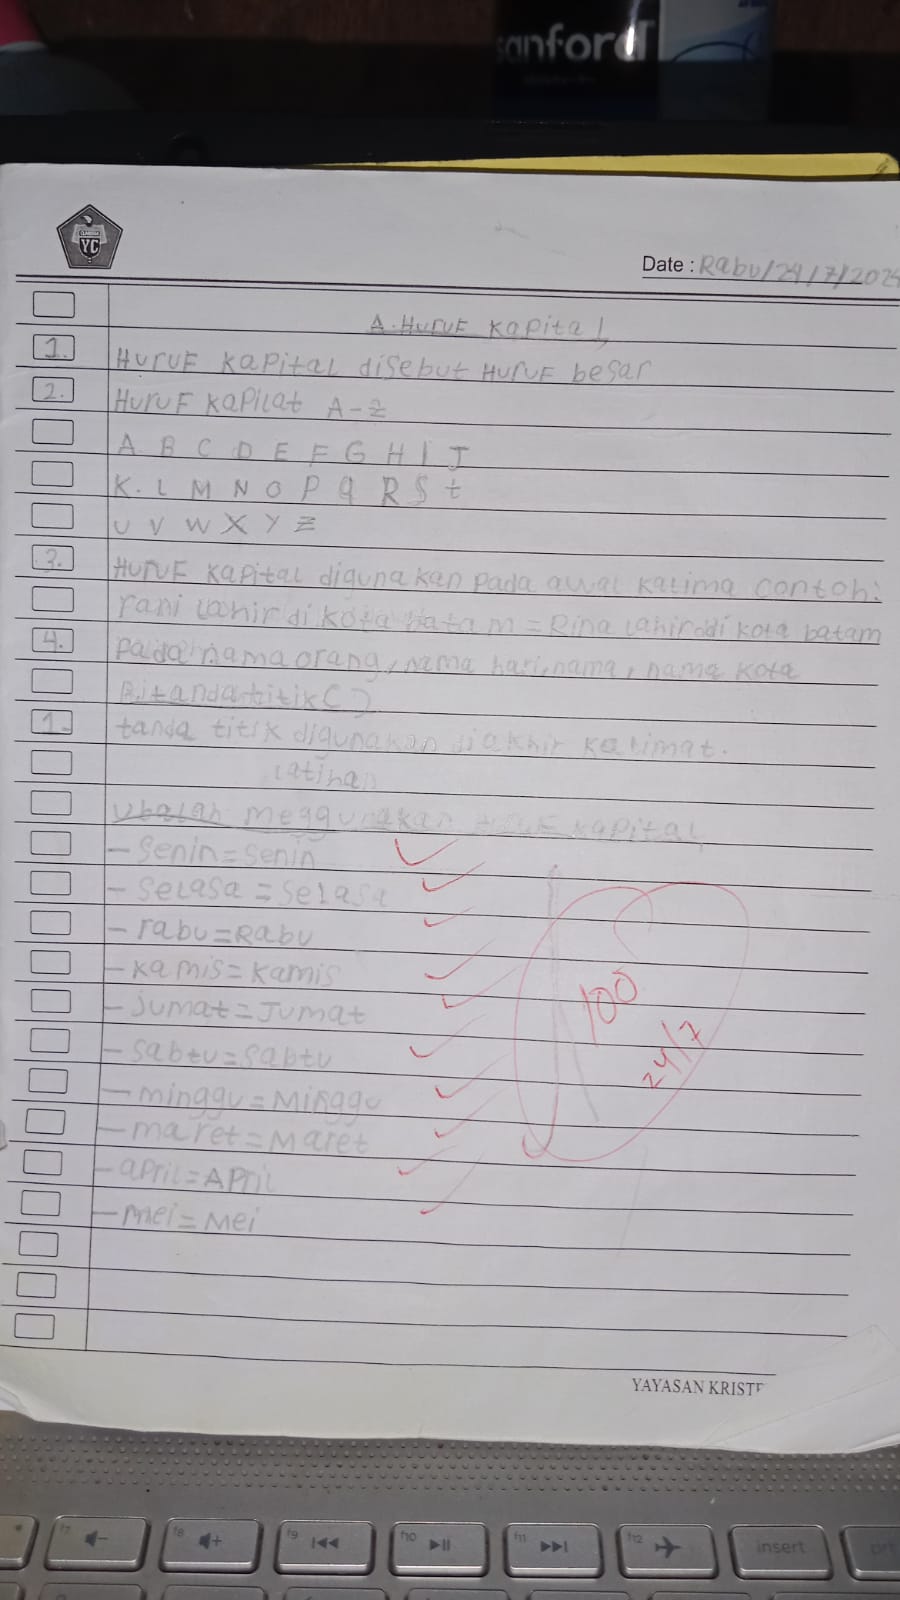 sanford
YC
Date : Rabu/24/7/2024
A. HuruF Kapital
1. HuruF KaPital disebut HuruF besar
2. HuruF KaPilat A-Z
A B C D E F G H I J
K. L M N O P q R S t
U V W X Y Z
3. HuruF KaPital digunakan pada awal kalima contoh:
rani lahir di kota batam = Rina lahir di kota batam
4. Pada nama orang, nama hari, nama, nama kota
B. tanda titik ( )
1. tanda titik digunakan diakhir kalimat.
latihan
Ubalah meggunakan HuruF Kapital
- senin = Senin
- selasa = Selasa
- rabu = Rabu
- kamis = Kamis
- jumat = Jumat
- sabtu = Sabtu
- minggu = Minggu
- maret = Maret
- april = APril
- mei = Mei
100
24/7
YAYASAN KRISTE
f7
f8
f9
f10
f11
f12
insert